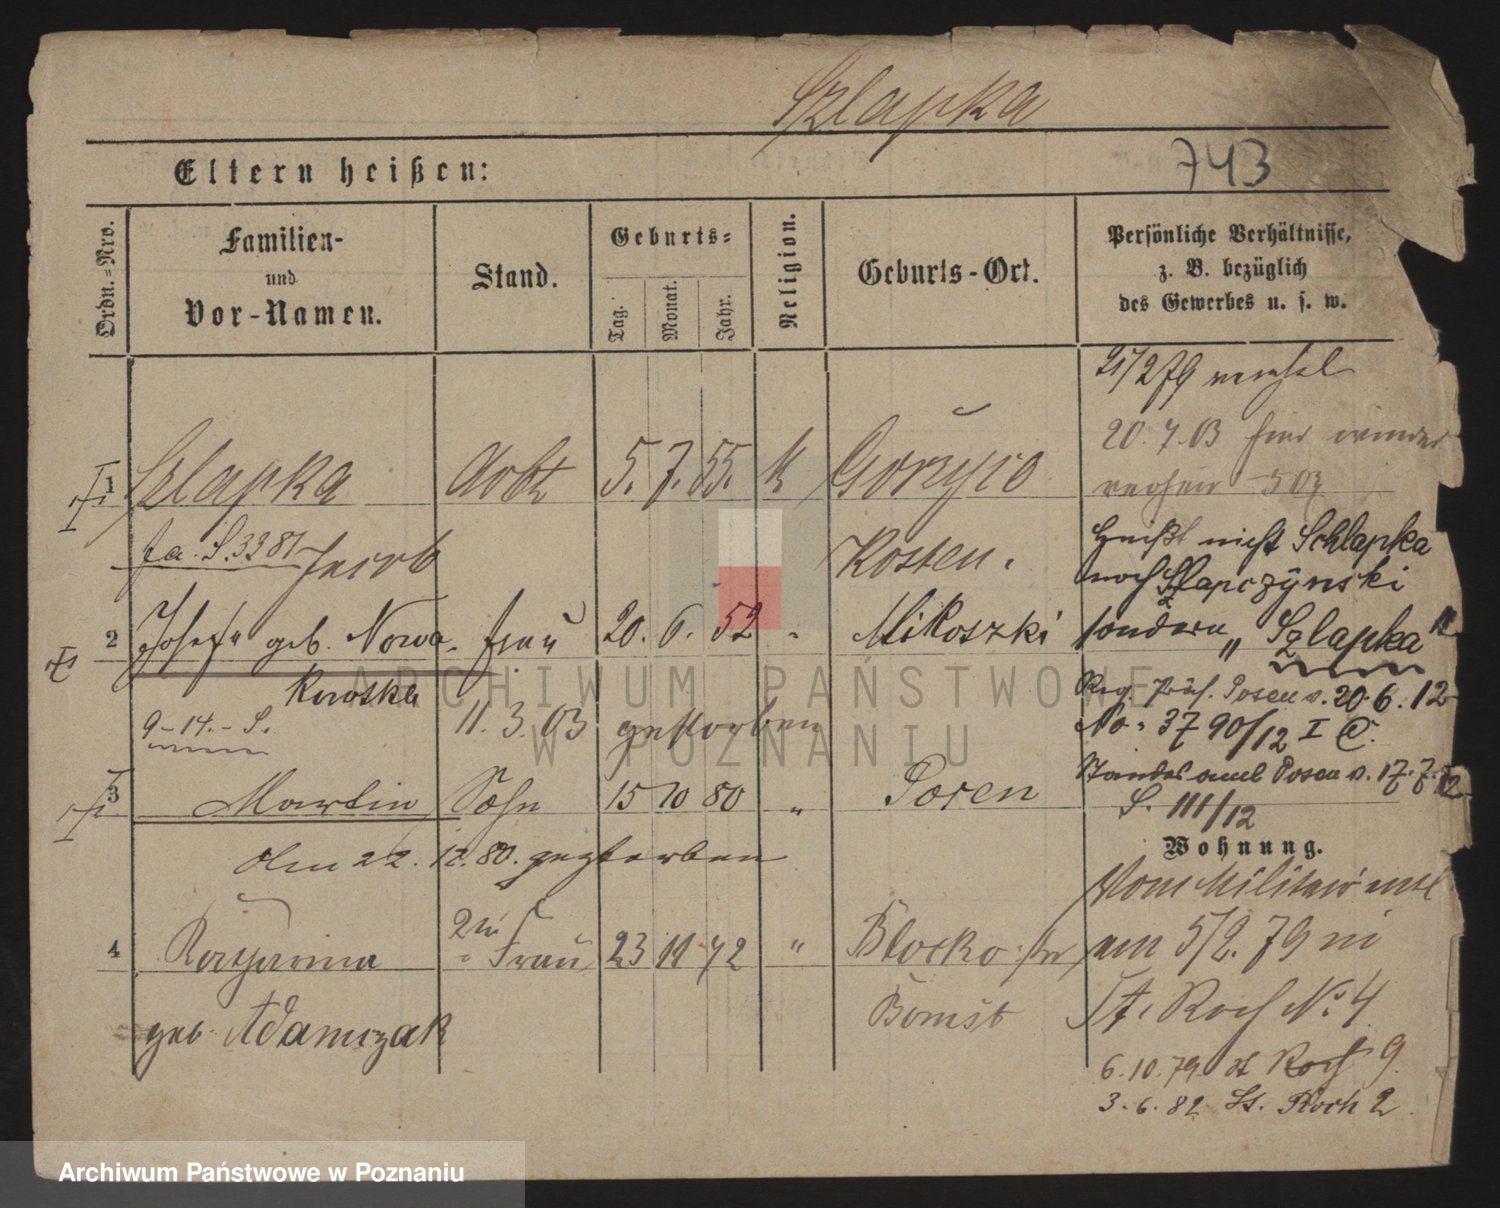 Szlapka
743
Eltern heißen:
Ordn.=Nro.
Familien-
und
Vor-Namen.
Stand.
Geburts=
Tag.
Monat.
Jahr.
Religion.
Geburts-Ort.
Persönliche Verhältnisse,
z. B. bezüglich
des Gewerbes u. s. w.
21/2 79
20.7.03 hier wieder
503
1 Szlapka Arbt 5. 7. 55. k Goržyco
fa. S. 3381 Jacob Kosten.
heißt nicht Schlapka
noch Slapczÿnski
2 Josefa geb. Nowa- frau 20. 6. 52 " Mikoszki
sondern „Szlapka"
kowska
Reg. Präs. Posen v. 20.6.12
9-14.-S. 11.3.03 gestorben
No. 3790/12 I C.
Standesamt Posen v. 17.7.12
3 Martin Sohn 15 10 80 " Posen
S. 111/12
Wohnung.
Am 22.12.80. gestorben
Vom Militair
4 Katharina 2te Frau 23 11 72 " Blocko
am 5/2.79 in
geb. Adamczak Bomst
St. Roch No. 4
6.10.79 St Roch 9.
3.6.82 St. Roch 2.
ARCHIWUM PAŃSTWOWE
W POZNANIU
Archiwum Państwowe w Poznaniu